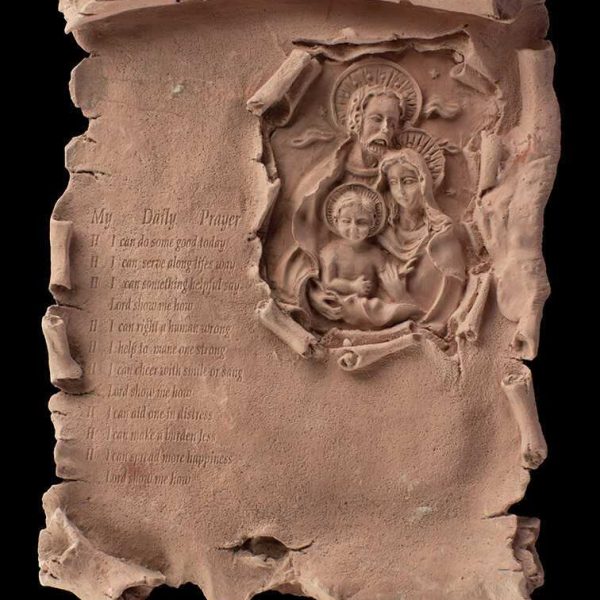 My Daily Prayer
If I can do some good today
If I can serve along lifes way
If I can something helpful say
Lord show me how
If I can right a human wrong
If I help to mane one strong
If I can cheer with smile or sang
Lord show me how
If I can aid one in distress
If I can make a burden less
If I can spread more happiness
Lord show me how